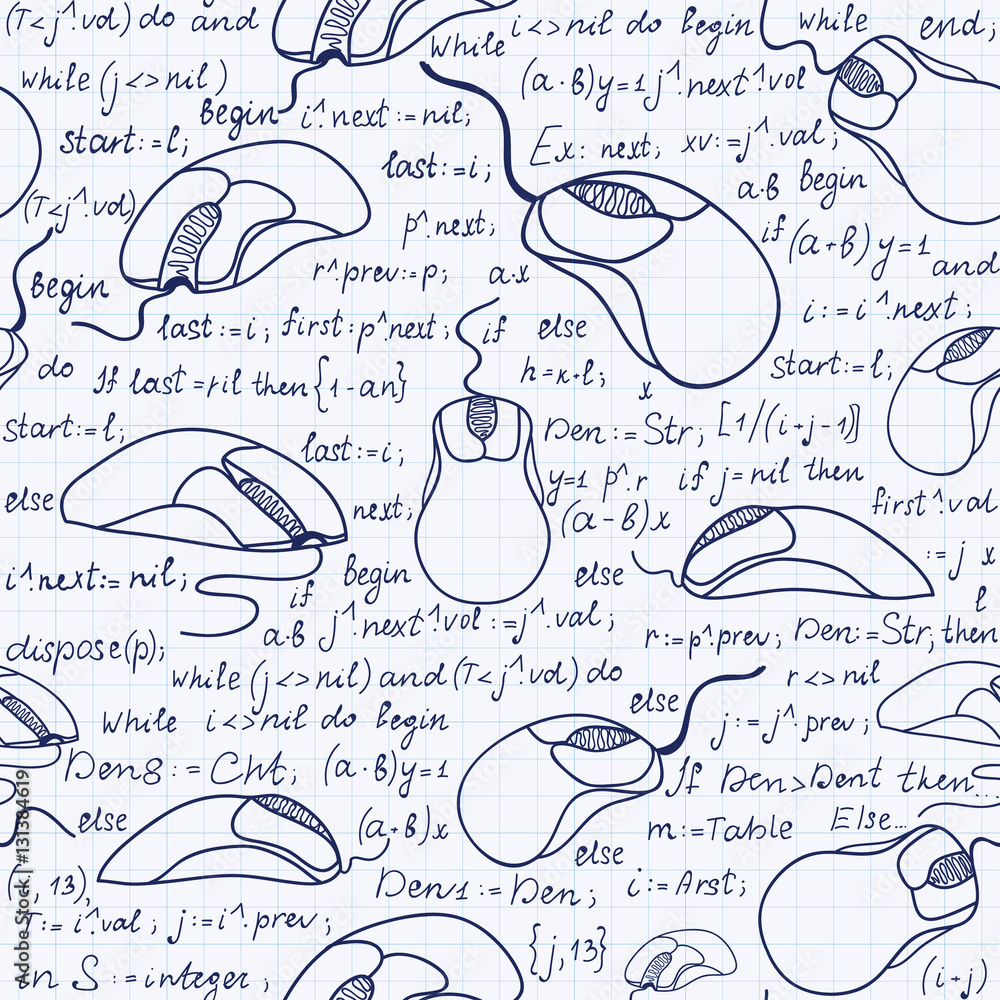 (T<j^.vol) do and
while i<>nil do begin
while
end;
while (j<>nil)
(a·b)y=1 j^.next^.vol
begin i^.next:=nil;
start:=l;
Ex: next; xv:=j^.val;
last:=i;
a·b begin
(T<j^.vol)
p^.next;
if (a+b)y=1
and
r^.prev:=p; a·x
begin
i:=i^.next;
last:=i; first:p^.next; if else
do
If last=ril then{1-an}
h=k+l;
start:=l;
x
start:=l;
Den:=Str; [1/(i+j-1)]
last:=i;
y=1 p^.r if j=nil then
else
next;
(a-b)x
first^.val
:=j x
i^.next:=nil;
if begin
else
l
a·b j^.next^.vol:=j^.val;
dispose(p);
r:=p^.prev; Den:=Str; then
while (j<>nil) and (T<j^.vol) do
r<>nil
else
while i<>nil do begin
j:=j^.prev;
Den8:=Cht; (a·b)y=1
If Den>Dent then...
else
(a+b)x
m:=Table Else...
else
(, 13),
Den1:=Den; i:=Arst;
T:=i^.val; j:=i^.prev;
{j,13}
in S:=integer;
(i+j)
Adobe Stock | #131384619